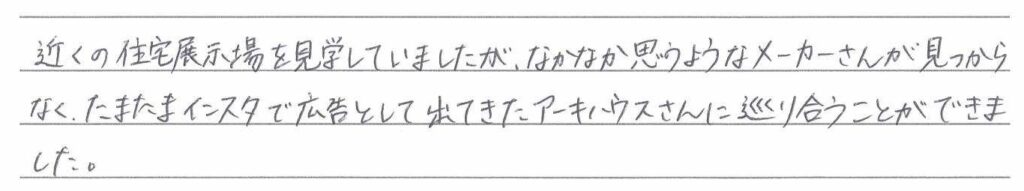 近くの住宅展示場を見学していましたが、なかなか思うようなメーカーさんが見つから
なく、たまたまインスタで広告として出てきたアーキハウスさんに巡り合うことができま
した。